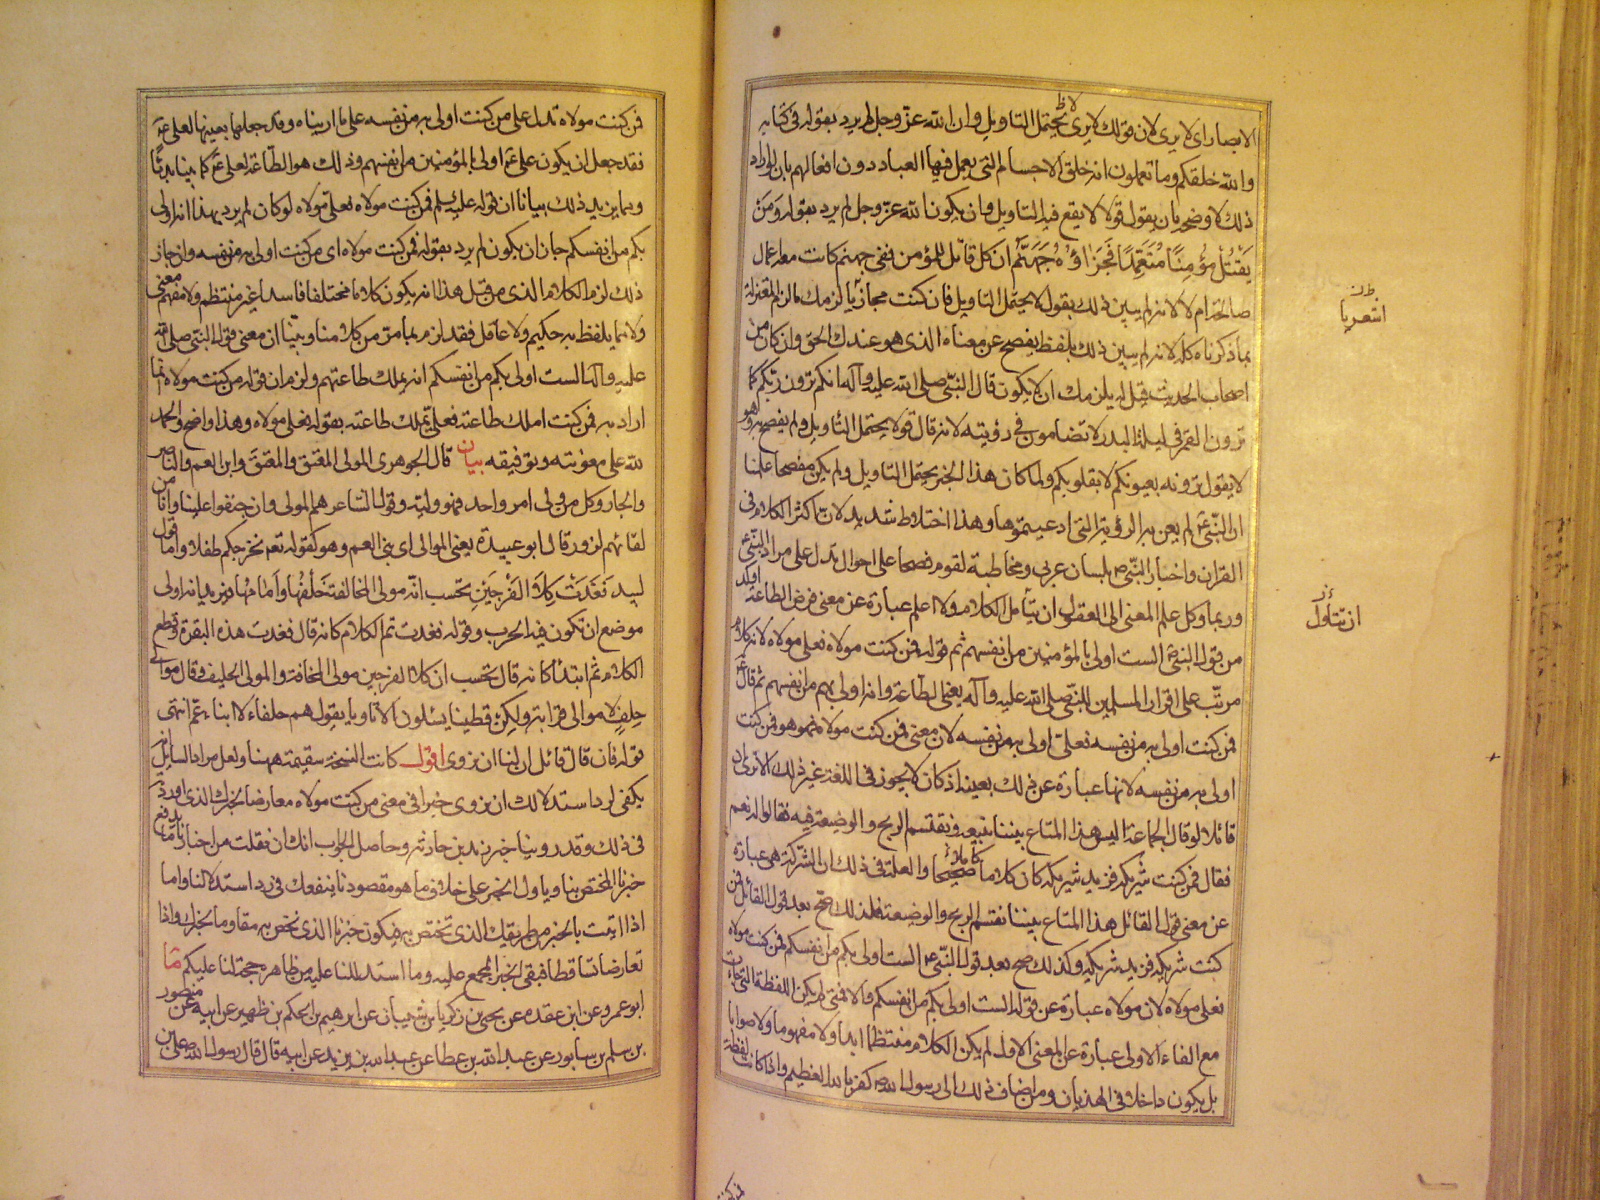 الابصار اى لا يرى لان قولك لا يرى لا يحتمل التاويل وان الله عزّ وجل لم يرد بقوله فى كتابه
والله خلقكم وما تعملون انه خلق الاجسام التى يعمل فيها العباد دون افعالهم بان لو اراد
ذلك لاوضحه بان يقول قولا لا يقع فيه التاويل وان يكون الله عزّ وجل لم يرد بقوله ومن
يقتل مؤمنا متعمدا فجزاؤه جهنّم ان كل قاتل للمؤمن ففى جهنم كانت معه اعمال
صالحة ام لا لانه لم يبين ذلك بقول لا يحتمل التاويل فان كنت لزمك ما لزم المعتزلة
بما ذكرناه كله لانه لم يبين ذلك بلفظ يفصح عن معناه الذى هو عندك الحق وان كان من
اصحاب الحديث قيل له يلزمك ان لا يكون قال النبىّ صلى الله عليه وآله انكم ترون ربّكم كما
ترون القمر فى ليلة البدر لا تضامون فى رؤيته لانه قال قولا يحتمل التأويل ولم يفصح به وهو
لا يقول ترونه بعيونكم لا بقلوبكم ولما كان هذا الخبر يحتمل التاويل ولم يكن مفصحا علمنا
ان النّبىّ ؐ لم يعن به الرؤية التى ادعيتموها وهذا اختلاط شديد لان اكثر الكلام فى
القران واخبار النّبىّ ؐ بلسان عربى ومخاطبة لقوم فصحا على احوال تدل على مراد النّبىّ
وربما وكل علم المعنى الى العقول ان يتأمل الكلام ولا اعلم عبارة عن معنى فرض الطاعة اوكد
من قول النبىؐ الست اولى بالمؤمنين من انفسهم ثم قوله فمن كنت مولاه فعلى مولاه لانه كلام
مرتّب على اقرار المسلمين للنّبى صلى الله عليه وآله يعنى الطاعة وانه اولى بهم من انفسهم ثم قال
فمن كنت اولى به من نفسه فعلىّ اولى به من نفسه لان معنى فمن كنت مولاه هو فمن كنت
اولى به من نفسه لانها عبارة عن ذلك بعينه اذ كان لا يجوز فى اللغة غير ذلك الا ترى ان
قائلا لو قال لجماعة اليس هذا المتاع بيننا نبيعه ونقتسم الربح والوضيعة فيه فقالوا له نعم
فقال فمن كنت شريكه فزيد شريكه كان كلاما صحيحا والعلة فى ذلك ان الشركة هى عبارة
عن معنى قول القائل هذا المتاع بيننا نقتسم الربح والوضيعة فلذلك صح بعد قول القائل فمن
كنت شريكه فزيد شريكه وكذلك صح بعد قول النّبىّ ؐ الست اولى بكم من انفسكم فمن كنت مولاه
فعلى مولاه لان مولاه عبارة عن قوله الست اولى بكم من انفسكم والا فمتى لم يكن اللفظة التى جاءت
مع الفاء الاولى عبارة عن المعنى الاول لم يكن الكلام منتظما ابدا ولا مفهوما ولا صوابا
بل يكون داخلا فى الهذيان ومن اضاف ذلك الى رسول الله كفر بالله العظيم واذا كانت لفظة
اشعريا
ان تتاول
فمن كنت مولاه تدل على من كنت اولى به من نفسه على ما اريناه وقد جعلها بعينها لعلى
فقد جعل ان يكون على ؏ اولى بالمؤمنين من انفسهم وذلك هو الطاعة لعلى ؏ كما بيناه بديّا
ومما يزيد ذلك بيانا ان قوله عليه السلم فمن كنت مولاه فعلى مولاه لو كان لم يرد بهذا انه اولى
بكم من انفسكم جاز ان يكون لم يرد بقوله فمن كنت مولاه اى من كنت اولى به من نفسه وان جاز
ذلك لزم الكلام الذى من قبل هذا انه يكون كلاما مختلفا فاسدا غير منتظم ولا مفهم معنى
ولا مما يلفظ به حكيم ولا عاقل فقد لزم بما مرّ من كلامنا وبيّنا ان معنى قول النبى صلى الله
عليه وآله الست اولى بكم من انفسكم انه يملك طاعتهم ولزم ان قوله من كنت مولاه انما
اراد به فمن كنت املك طاعته فعلى يملك طاعته بقوله فعلى مولاه وهذا واضح والحمد
لله على معونته وتوفيقه بيان قال الجوهرى المولى المعتِق والمعتَق وابن العم والناصر
والجار وكل من ولى امر واحد فهو وليّه وقول الشاعر هم المولى وان جنفوا علينا وانا من
لقائهم لزور قال ابو عبيدة يعنى الموالى اى بنى العم وهو كقوله تعه نخرجكم طفلا واما قول
لبيد فغدت كلا الفرجين تحسب انّه مولى المخافة خلفها وامامها فيريد انه اولى
موضع ان تكون فيه الحرب وقوله فغدت تم الكلام كانه قال فغدت هذه البقرة وقطع
الكلام ثم ابتدأ كانه قال تحسب ان كلا الفرجين مولى المخافة والمولى الحليف وقال موالى
حلف لا موالى قرابة ولكن قطينا يسئلون الاتاويا يقول هم حلفاء لا ابناء عمّ انتهى
قوله فان قال قائل ان لنا ان نروى اقول كانت النسخة سقيمة ههنا ولعل مراد السائل انه
يكفى لرد استدلالك ان نروى خبرا فى معنى من كنت مولاه معارضا لخبرك الذى اوردته
فى ذلك وقد روينا خبر زيد بن حارثة وحاصل الجواب انك ان نقلت من اخبارنا ما يدفع
خبرنا المختص بنا وياول الخبر على خلاف ما هو مقصودنا ينفعك فى رد استدلالنا واما
اذا اتيت بالخبر من طريقك الذى تختص به فيكون خبرنا الذى نختص به مقاوما لخبرك واذا
تعارضا تساقطا فبقى الخبر المجمع عليه وما استدللنا عليه من ظاهره حجة لنا عليكم ما
ابو عمرو عن ابن عقدة عن يحيى بن زكريا بن شيبان عن ابرهيم بن الحكم بن ظهير عن ابيه عن منصور
بن سلم بن سابور عن عبد الله بن عطا عن عبد الله بن يزيد عن ابيه قال قال رسول الله على بن